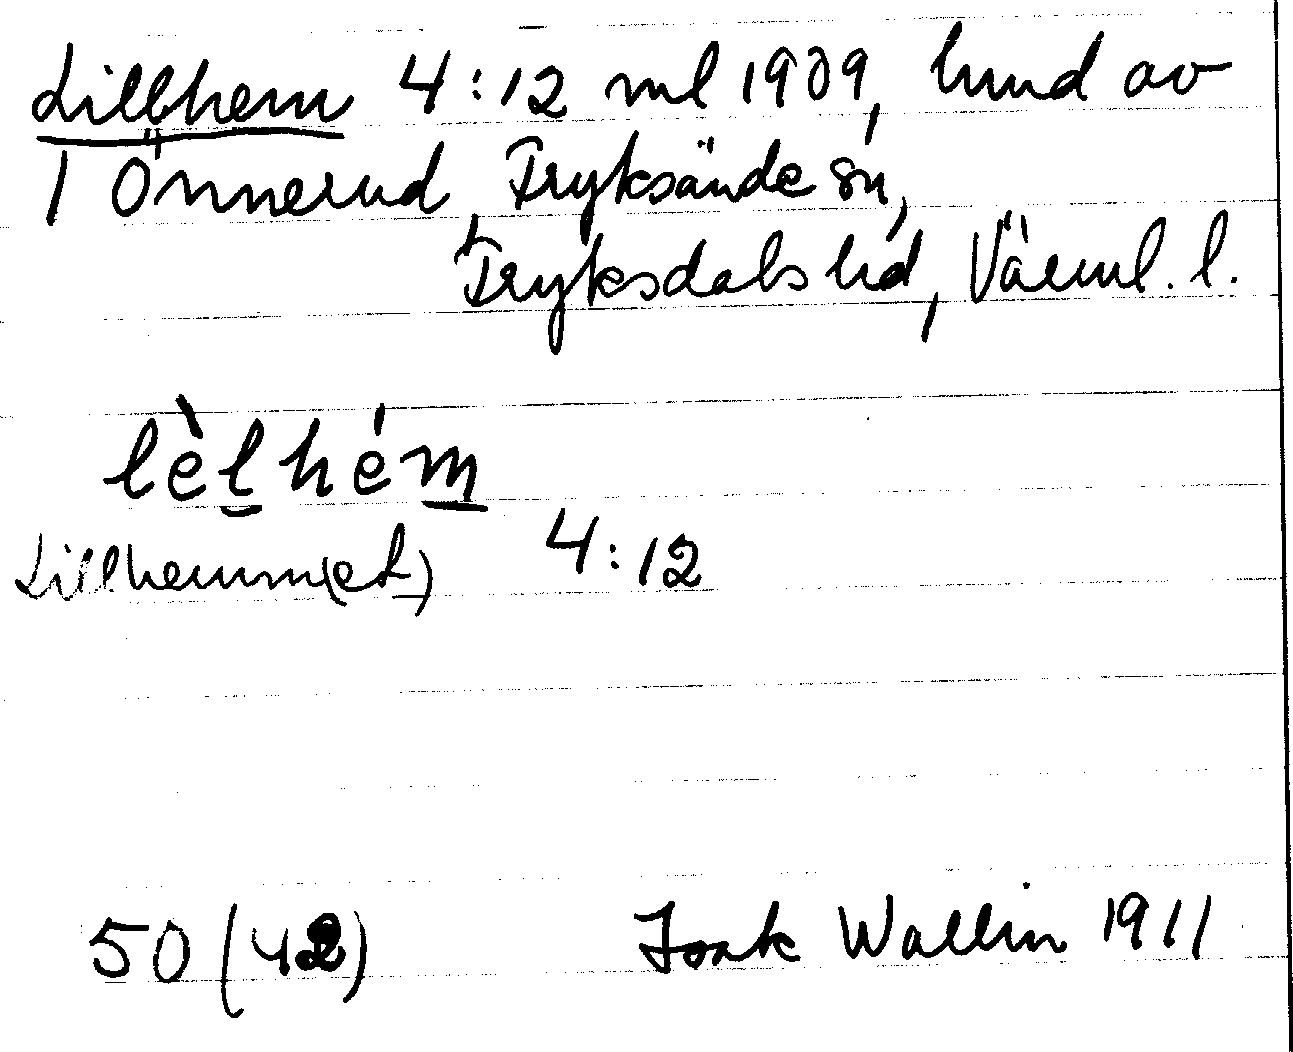 Lillhem 4:12 ml 1909, hmd av
1 Önnerud Fryksände sn,
Fryksdals hd, Värml. l.
lèl̲hém̲
Lillhemm(et) 4:12
50 (42) Joak Wallin 1911